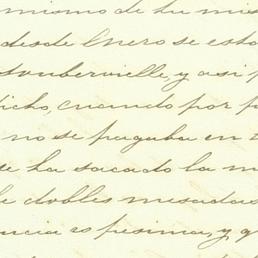 mismo de tu mis
desde Enero se esta
Soubervielle, y asi p
dicho, cuando por p
no se pagaba en
se ha sacado la m
de dobles mesadas
encia es pesima, y q